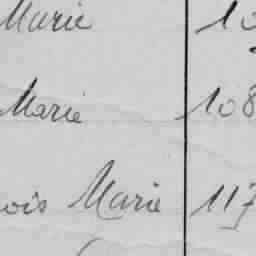 Marie 10
Marie 108
ois Marie 117